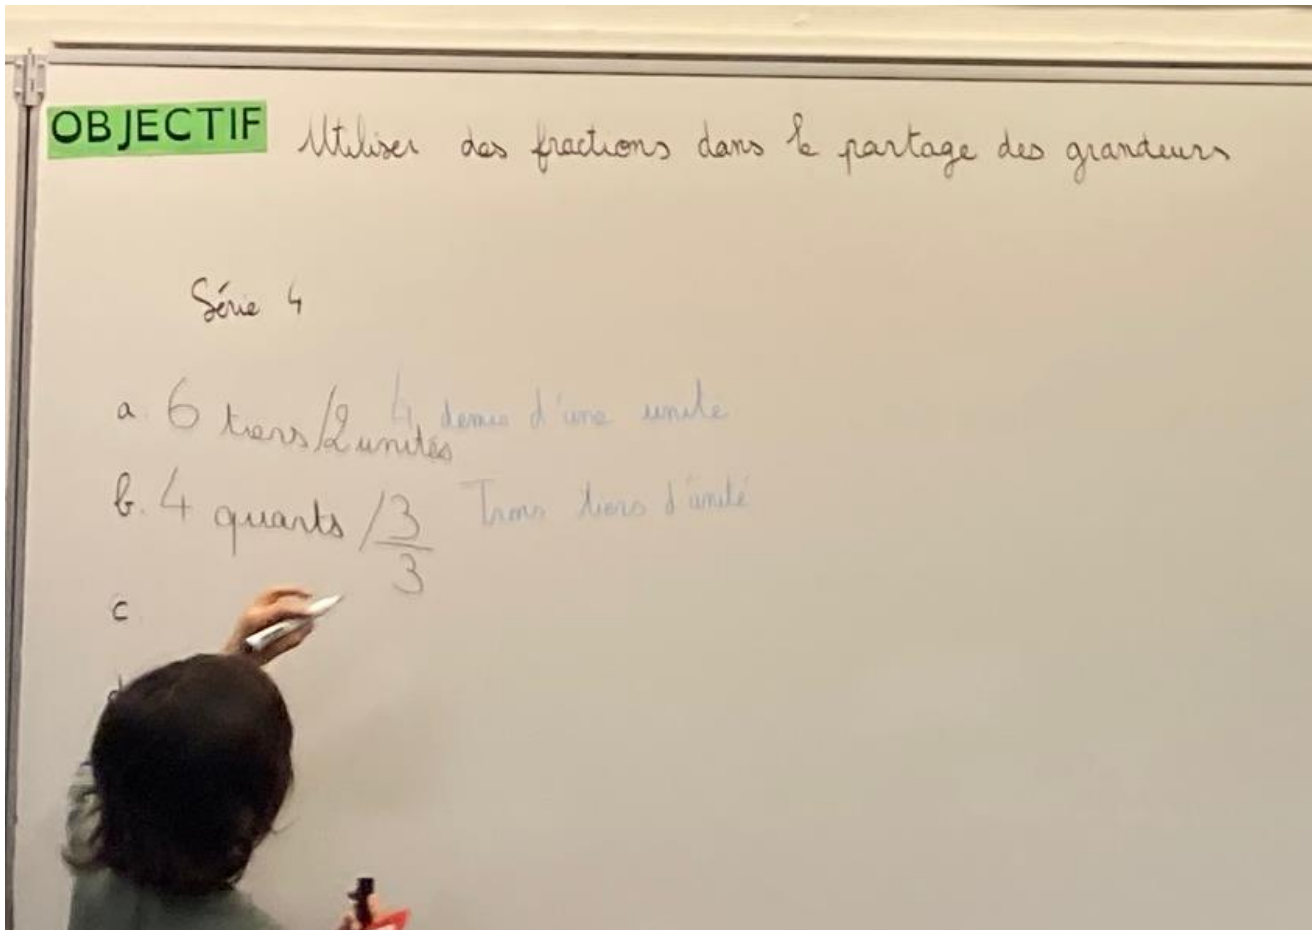 OBJECTIF Utiliser des fractions dans le partage des grandeurs
Série 4
a. 6 tiers / 2 unités 4 demis d'une unité
b. 4 quarts / 3/3 Trois tiers d'unité
c.
d